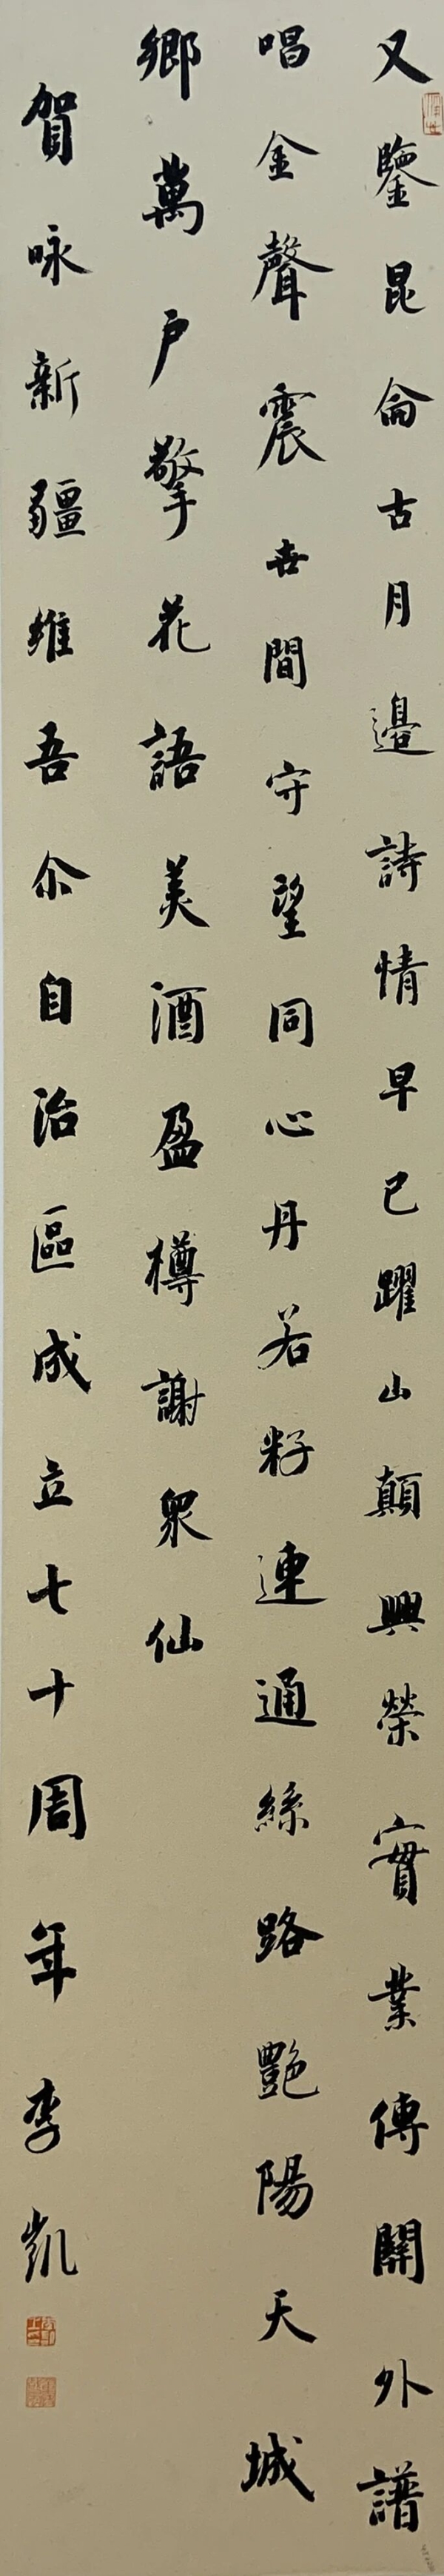 又鑒昆侖古月邊詩情早已躍山顛興榮實業傳關外譜
唱金聲震世間守望同心丹若籽連通絲路艷陽天城
鄉萬戶擎花語美酒盈樽謝眾仙
賀咏新疆維吾尒自治區成立七十周年李凱